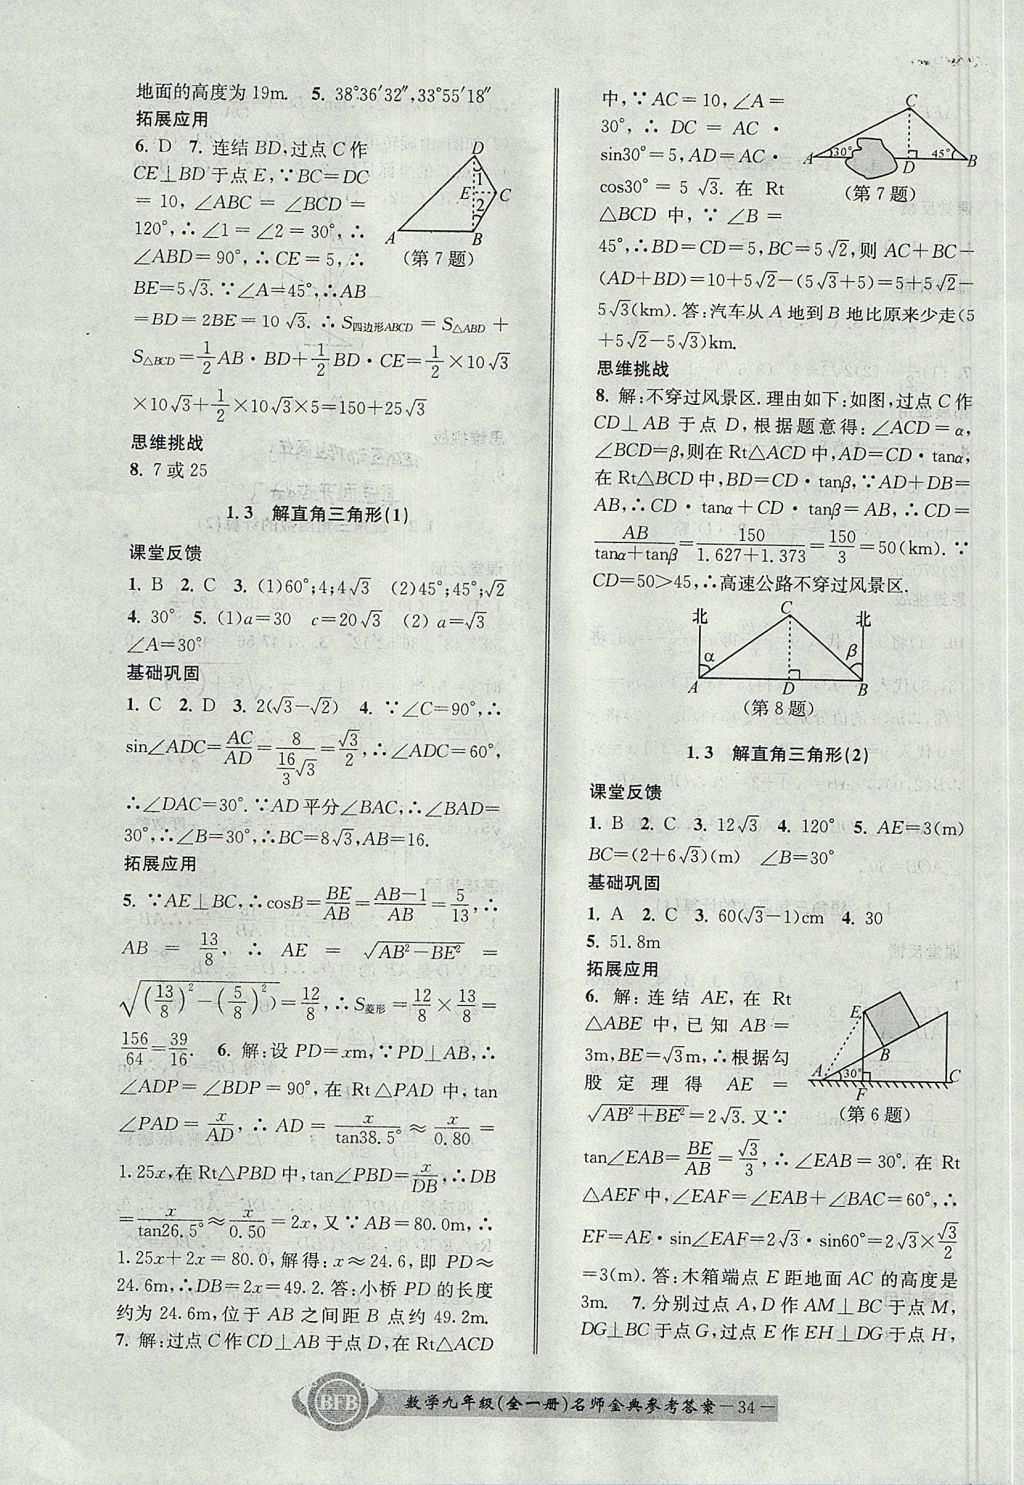 地面的高度为19m. 5. 38°36′32″,33°55′18″
拓展应用
6. D 7. 连结BD,过点C作
CE⊥BD于点E,∵BC=DC
=10,∠ABC=∠BCD=
120°,∴∠1=∠2=30°,∴
∠ABD=90°,∴CE=5,∴
BE=5√3.∵∠A=45°,∴AB
=BD=2BE=10√3.∴S四边形ABCD=S△ABD+
S△BCD=1/2AB·BD+1/2BD·CE=1/2×10√3
×10√3+1/2×10√3×5=150+25√3
D
1
E
C
2
A
B
(第7题)
思维挑战
8. 7或25
1.3 解直角三角形(1)
课堂反馈
1. B 2. C 3. (1)60°;4;4√3 (2)45°;45°;√2
4. 30° 5. (1)a=30 c=20√3 (2)a=√3
∠A=30°
基础巩固
1. C 2. D 3. 2(√3−√2) 4. ∵∠C=90°,∴
sin∠ADC=AC/AD=8/(16/3√3)=√3/2,∴∠ADC=60°,
∴∠DAC=30°.∵AD平分∠BAC,∴∠BAD=
30°,∴∠B=30°,∴BC=8√3,AB=16.
拓展应用
5. ∵AE⊥BC,∴cosB=BE/AB=(AB−1)/AB=5/13,∴
AB=13/8,∴AE=√(AB²−BE²)=
√((13/8)²−(5/8)²)=12/8,∴S菱形=12/8×13/8=
156/64=39/16. 6. 解:设PD=xm,∵PD⊥AB,∴
∠ADP=∠BDP=90°,在Rt△PAD中,tan
∠PAD=x/AD,∴AD=x/tan38.5°≈x/0.80=
1.25x,在Rt△PBD中,tan∠PBD=x/DB,∴DB
=x/tan26.5°≈x/0.50=2x,又∵AB=80.0m,∴
1.25x+2x=80.0,解得:x≈24.6,即PD≈
24.6m,∴DB=2x=49.2.答:小桥PD的长度
约为24.6m,位于AB之间距B点约49.2m.
7. 解:过点C作CD⊥AB于点D,在Rt△ACD
中,∵AC=10,∠A=
30°,∴DC=AC·
sin30°=5,AD=AC·
cos30°=5√3.在Rt
△BCD中,∵∠B=
45°,∴BD=CD=5,BC=5√2,则AC+BC−
(AD+BD)=10+5√2−(5√3+5)=5+5√2−
5√3(km).答:汽车从A地到B地比原来少走(5
+5√2−5√3)km.
C
A
30°
D
45°
B
(第7题)
思维挑战
8. 解:不穿过风景区.理由如下:如图,过点C作
CD⊥AB于点D,根据题意得:∠ACD=α,
∠BCD=β,则在Rt△ACD中,AD=CD·tanα,
在Rt△BCD中,BD=CD·tanβ,∵AD+DB=
AB,∴CD·tanα+CD·tanβ=AB,∴CD=
AB/(tanα+tanβ)=150/(1.627+1.373)=150/3=50(km).∵
CD=50>45,∴高速公路不穿过风景区.
北
C
北
α
β
A
D
B
(第8题)
1.3 解直角三角形(2)
课堂反馈
1. B 2. C 3. 12√3 4. 120° 5. AE=3(m)
BC=(2+6√3)(m) ∠B=30°
基础巩固
1. A 2. C 3. 60(√3−1)cm 4. 30
5. 51.8m
拓展应用
6. 解:连结AE,在Rt
△ABE中,已知AB=
3m,BE=√3m,∴根据勾
股定理得AE=
√(AB²+BE²)=2√3.又∵
tan∠EAB=BE/AB=√3/3,∴∠EAB=30°.在Rt
△AEF中,∠EAF=∠EAB+∠BAC=60°,∴
EF=AE·sin∠EAF=2√3·sin60°=2√3×√3/2
=3(m).答:木箱端点E距地面AC的高度是
3m. 7. 分别过点A,D作AM⊥BC于点M,
DG⊥BC于点G,过点E作EH⊥DG于点H,
E
B
A
30°
F
C
(第6题)
BFB
数学九年级(全一册)名师金典参考答案—34—